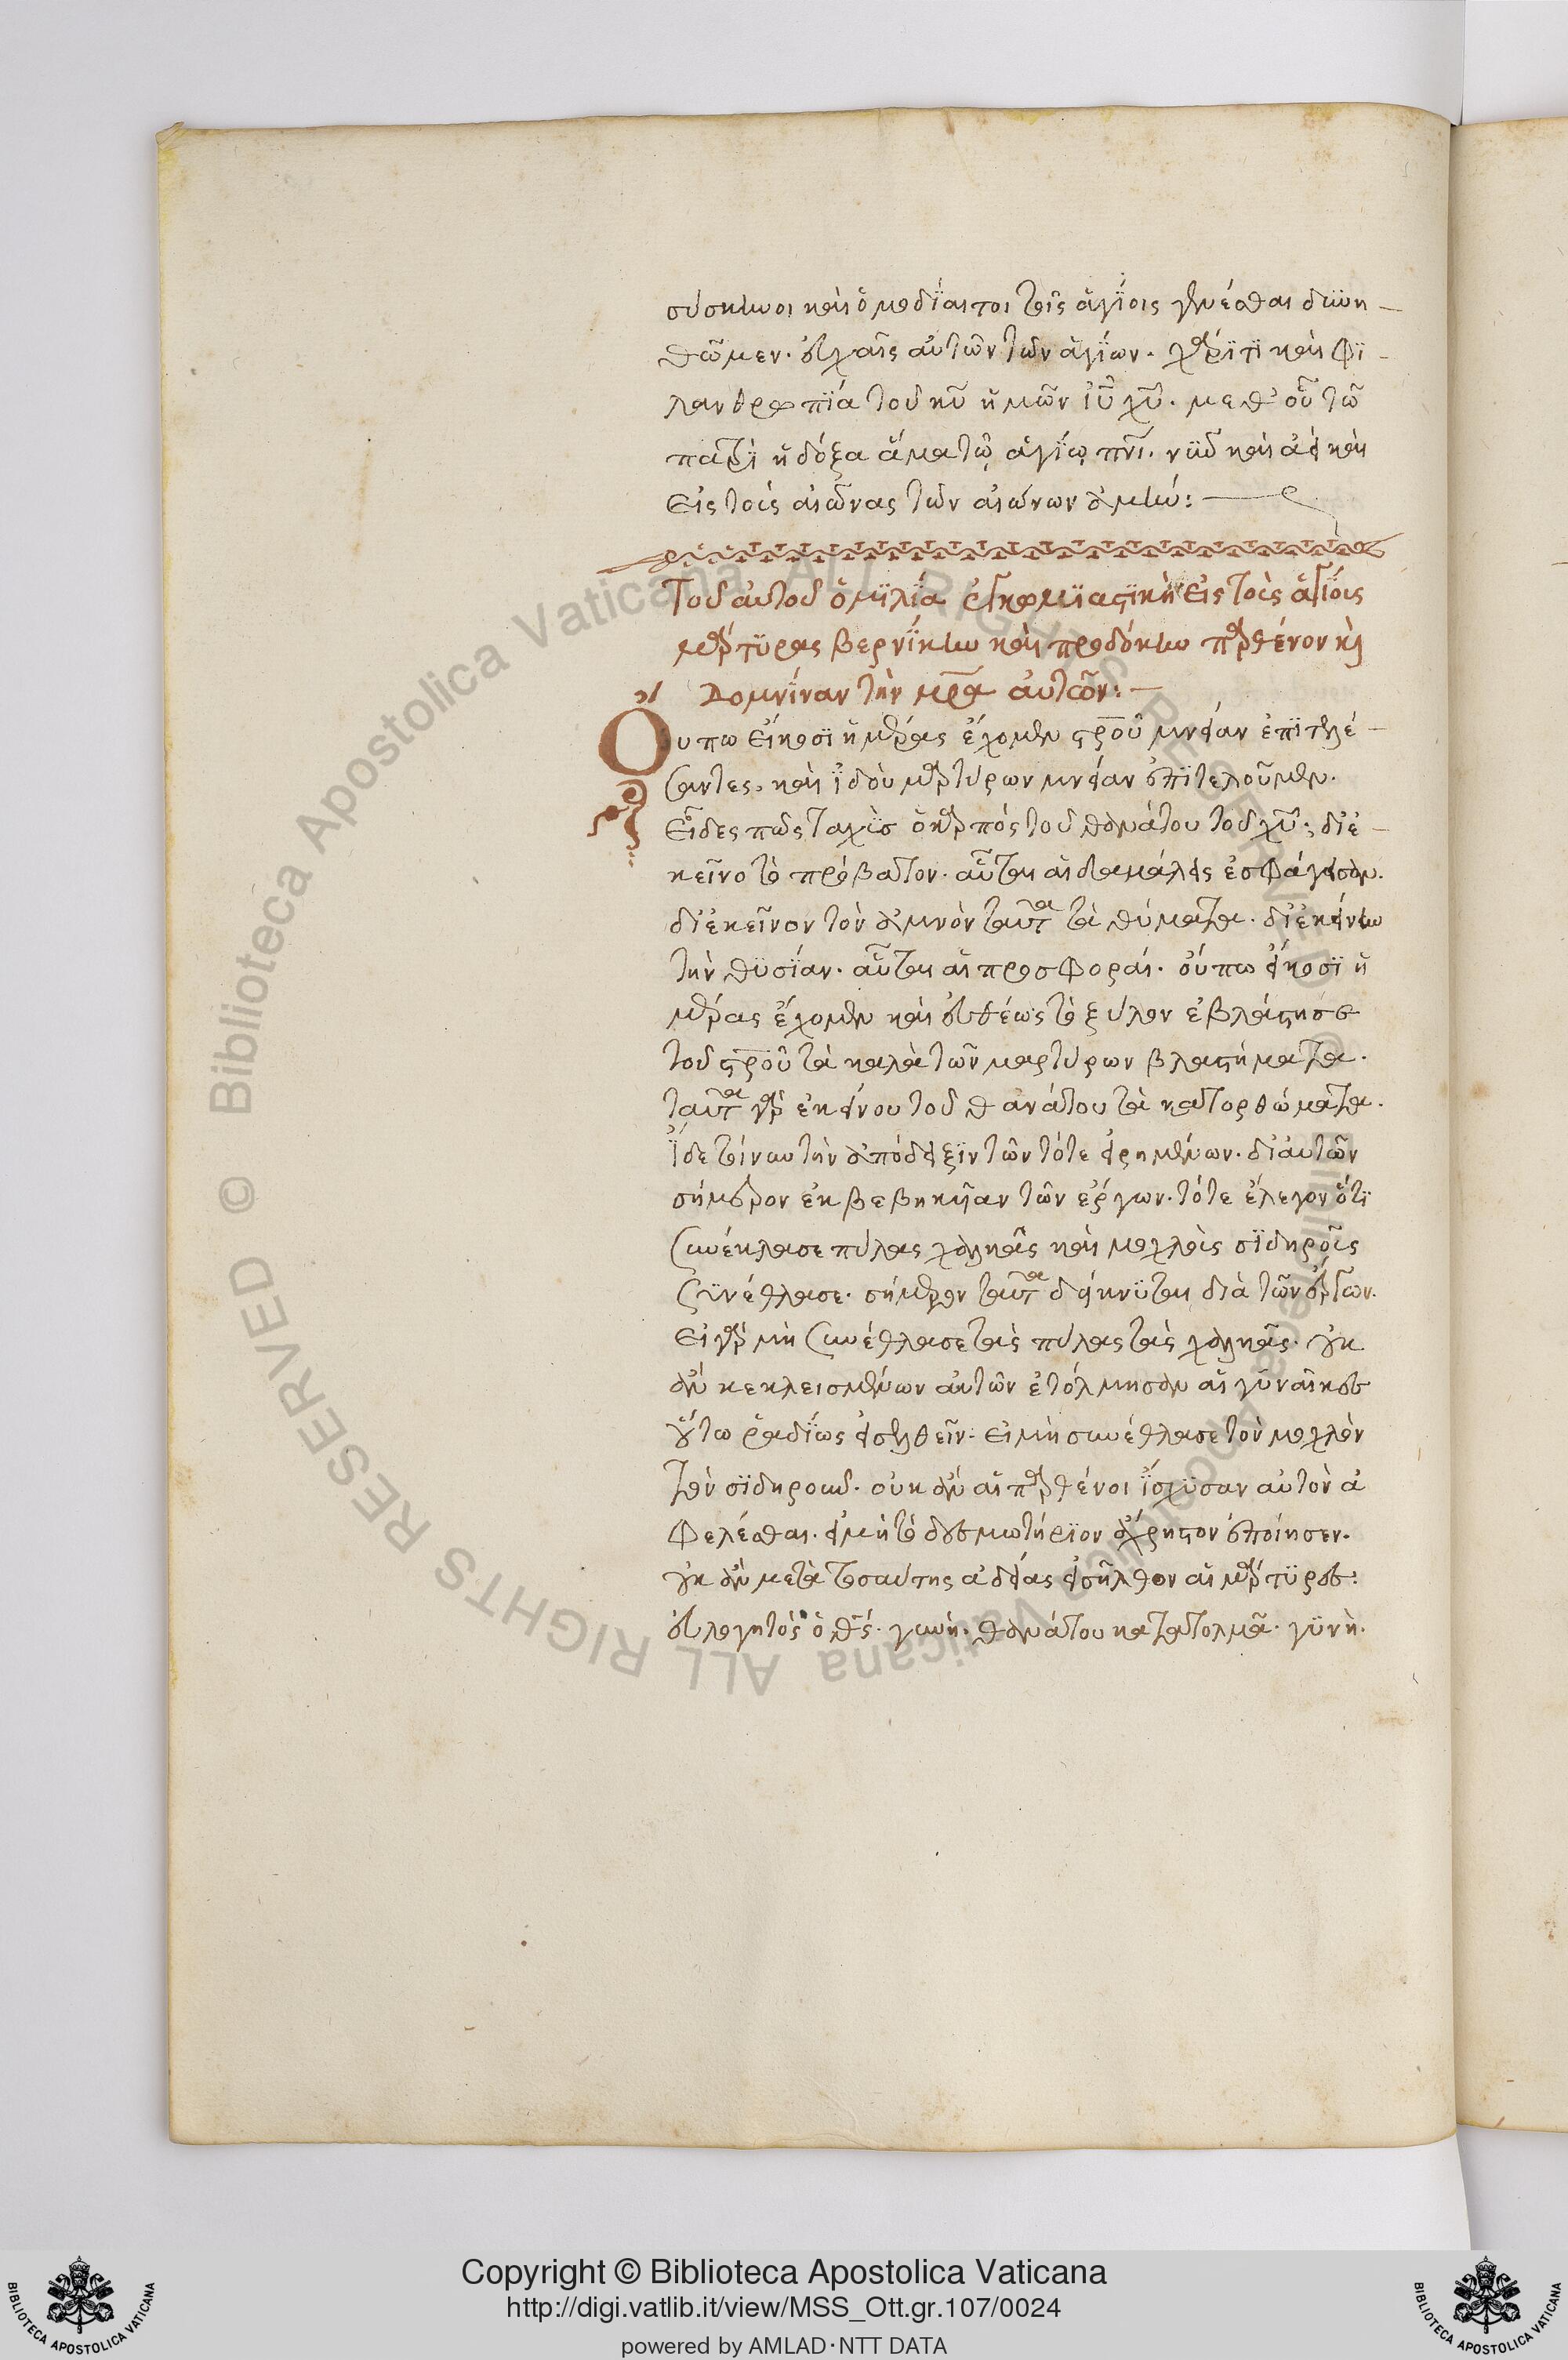 σύσκηνοι καὶ ὁμοδίαιτοι τοῖς ἁγίοις γενέσθαι δυνη
θῶμεν. εὐχαῖς αὐτῶν τῶν ἁγίων. χάριτι καὶ φι
λανθρωπία τοῦ κ̅υ̅ ἡμῶν ἰ̅υ̅ χ̅υ̅. μεθ' οὗ τῶ
πατρὶ ἡ δόξα ἅμα τῶ ἁγίω πνι. νῦν καὶ ἀεὶ καὶ
εἰς τοὺς αἰῶνας τῶν αἰώνων ἀμήν:
Τοῦ αὐτοῦ ὁμιλία ἐγκωμιαστικὴ εἰς τοὺς ἁγίους
μάρτυρας βερνίκην καὶ προδόκην παρθένον κ̀
Δομνίναν τὴν μρα αὐτῶν:
Οὔπω εἴκοσι ἡμέρας ἔχομεν στροῦ μνείαν ἐπιτελέ
σαντες. καὶ ἰδοὺ μαρτύρων μνείαν ἐπιτελοῦμεν.
εἶδες πῶς ταχὺσ ὁ καρπός τοῦ θανάτου τοῦ χ̅υ̅; δι' ἐ
κεῖνο τὸ πρόβατον. αὗται αἱ δαμάλεις ἐσφάγησαν.
δι' ἐκεῖνον τὸν ἀμνὸν ταῦτα τὰ θύματα. δι' ἐκείνην
τὴν θυσίαν. αὗται αἱ προσφοραί. οὔπω εἴκοσι ἡ
μέρας ἔχομεν καὶ εὐθέως τὸ ξύλον ἐβλάστησε
τοῦ στροῦ τὰ καλὰ τῶν μαρτύρων βλαστήματα.
ταῦτα γὰρ ἐκείνου τοῦ θανάτου τὰ κατορθώματα.
ἴδε τοίνυν τὴν ἀπόδειξιν τῶν τότε εἰρημένων. δι' αὐτῶν
σήμερον ἐκβεβηκυῖαν τῶν ἔργων. τότε ἔλεγον ὅτι
συνέκλασε πύλας χαλκᾶς καὶ μοχλοὺς σιδηροῦς
συνέθλασε. σήμερον ταῦτα δείκνυται διὰ τῶν ἔργων.
εἰ γὰρ μὴ συνέθλασε τὰς πύλας τὰς χαλκᾶς. οὐκ
ἂν κεκλεισμένων αὐτῶν ἐτόλμησαν αἱ γυναῖκες
οὕτω ῥαδίως εἰσελθεῖν. εἰ μὴ συνέθλασε τὸν μοχλὸν
τὸν σιδηροῦν. οὐκ ἂν αἱ παρθένοι ἴσχυσαν αὐτὸν ἀ
φελέσθαι. εἰ μὴ τὸ δεσμωτήριον ἄχρηστον ἐποίησεν.
οὐκ ἂν μετὰ τοσαύτης ἀδείας εἰσῆλθον αἱ μάρτυρες.
εὐλογητὸς ὁ θ̅ς̅. γυνὴ. θανάτου κατατολμᾶ. γυνὴ.
Copyright © Biblioteca Apostolica Vaticana
http://digi.vatlib.it/view/MSS_Ott.gr.107/0024
powered by AMLAD·NTT DATA